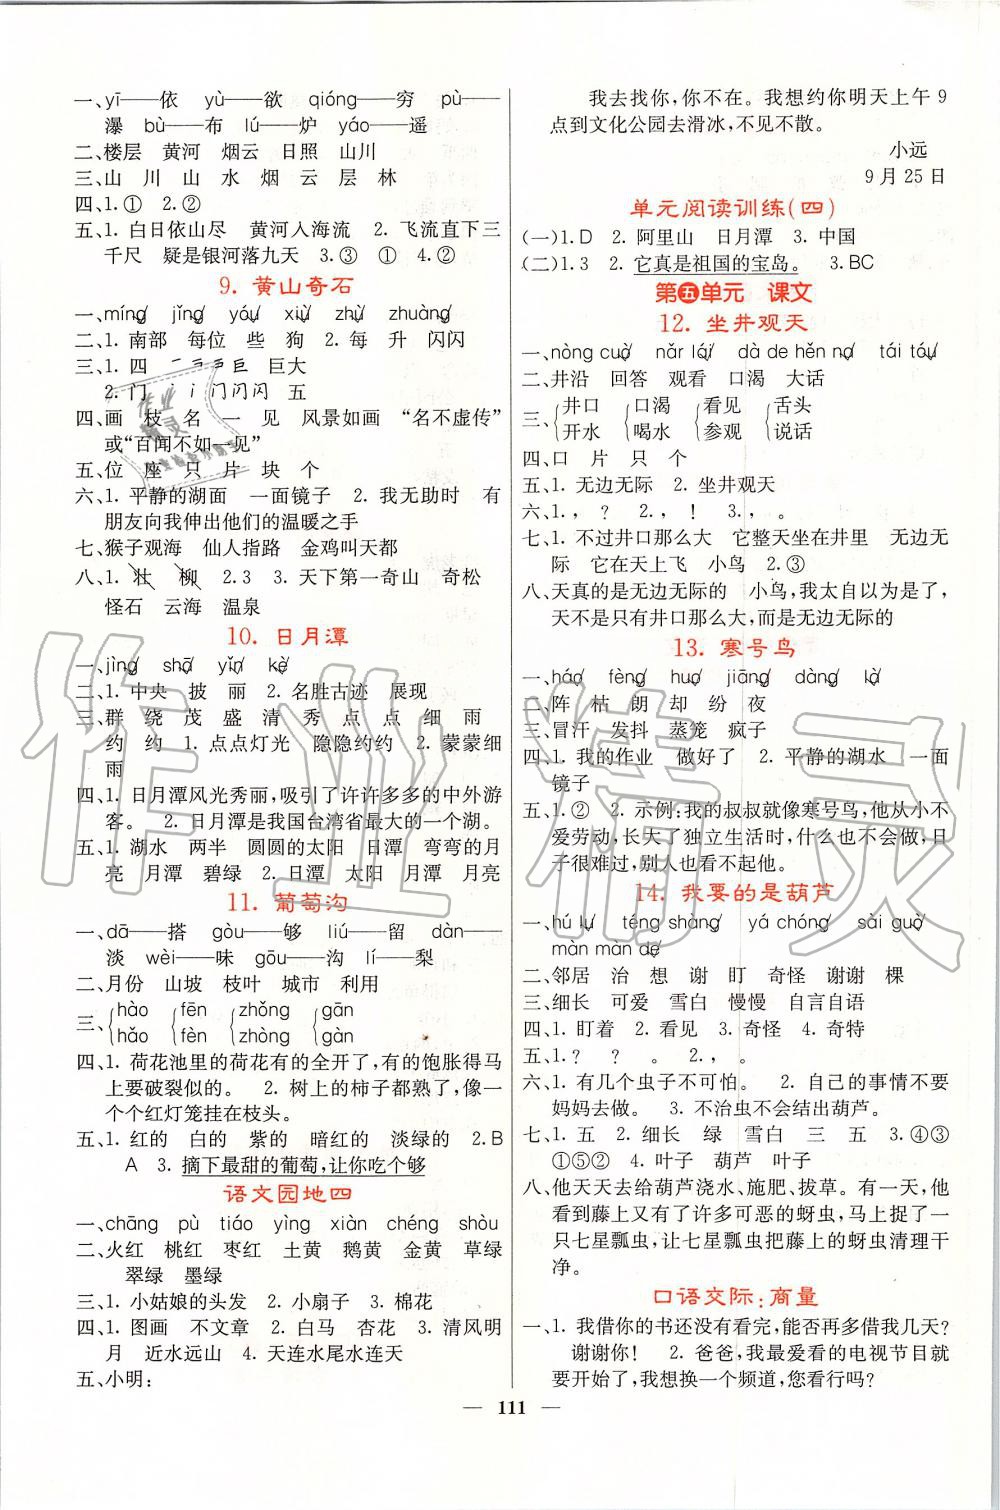 一、yī——依 yù——欲 qióng——穷 pù——
瀑 bù——布 lú——炉 yáo——遥
二、楼层 黄河 烟云 日照 山川
三、山 川 山 水 烟 云 层 林
四、1.① 2.②
五、1. 白日依山尽 黄河入海流 2. 飞流直下三
千尺 疑是银河落九天 3.③ ① 4.②
9. 黄山奇石
一、míng jǐng yóu xiē zhú zhuàng
二、1. 南部 每位 些 狗 2. 每 升 闪闪
三、1. 四 巨 巨大
2. 门 丶 丨 门闪闪 五
四、画 枝 名 一 见 风景如画 “名不虚传”
或“百闻不如一见”
五、位 座 只 片 块 个
六、1. 平静的湖面 一面镜子 2. 我无助时 有
朋友向我伸出他们的温暖之手
七、猴子观海 仙人指路 金鸡叫天都
八、1. 壮 柳 2.3 3. 天下第一奇山 奇松
怪石 云海 温泉
10. 日月潭
一、jìng shā yǐn kè
二、1. 中央 披 丽 2. 名胜古迹 展现
三、群 绕 茂 盛 清 秀 点 点 细 雨
约 约 1. 点点灯光 隐隐约约 2. 蒙蒙细
雨
四、1. 日月潭风光秀丽,吸引了许许多多的中外游
客。 2. 日月潭是我国台湾省最大的一个湖。
五、1. 湖水 两半 圆圆的太阳 日潭 弯弯的月
亮 月潭 碧绿 2. 日潭 太阳 月潭 月亮
11. 葡萄沟
一、dā——搭 gòu——够 liú——留 dàn——
淡 wèi——味 gōu——沟 lí——梨
二、月份 山坡 枝叶 城市 利用
三、hào fēn zhǒng gān
hǎo fèn zhòng gàn
四、1. 荷花池里的荷花有的全开了,有的饱胀得马
上要破裂似的。 2. 树上的柿子都熟了,像一
个个红灯笼挂在枝头。
五、1. 红的 白的 紫的 暗红的 淡绿的 2.B
A 3. 摘下最甜的葡萄,让你吃个够
语文园地四
一、chāng pù tiáo yìng xiàn chéng shòu
二、火红 桃红 枣红 土黄 鹅黄 金黄 草绿
翠绿 墨绿
三、1. 小姑娘的头发 2. 小扇子 3. 棉花
四、1. 图画 不文章 2. 白马 杏花 3. 清风明
月 近水远山 4. 天连水尾水连天
五、小明:
我去找你,你不在。我想约你明天上午 9
点到文化公园去滑冰,不见不散。
小远
9 月 25 日
单元阅读训练(四)
(一)1.D 2. 阿里山 日月潭 3. 中国
(二)1.3 2. 它真是祖国的宝岛。 3.BC
第五单元 课文
12. 坐井观天
一、nòng cuò nǎr lái dà de hěn na tái tóu
二、井沿 回答 观看 口渴 大话
三、井口 口渴 看见 舌头
开水 喝水 参观 说话
四、口 片 只 个
五、1. 无边无际 2. 坐井观天
六、1. , ? 2. , ! 3. , 。
七、1. 不过井口那么大 它整天坐在井里 无边无
际 它在天上飞 小鸟 2.③
八、天真的是无边无际的 小鸟,我太自以为是了,
天不是只有井口那么大,而是无边无际的
13. 寒号鸟
一、háo fèng huó jiāng dàng là
二、阵 枯 朗 却 纷 夜
三、冒汗 发抖 蒸笼 疯子
四、1. 我的作业 做好了 2. 平静的湖水 一面
镜子
五、1.② 2. 示例:我的叔叔就像寒号鸟,他从小不
爱劳动,长大了独立生活时,什么也不会做,日
子很难过,别人也看不起他。
14. 我要的是葫芦
一、hú lu téng shang yá chóng sài guò
màn màn de
二、邻居 治 想 谢 盯 奇怪 谢谢 棵
三、细长 可爱 雪白 慢慢 自言自语
四、1. 盯着 2. 看见 3. 奇怪 4. 奇特
五、1. ? ? 。 2. , 。
六、1. 有几个虫子不可怕。 2. 自己的事情不要
妈妈去做。 3. 不治虫不会结出葫芦。
七、1. 五 2. 细长 绿 雪白 三 五 3.④③
①⑤② 4. 叶子 葫芦 叶子
八、他天天去给葫芦浇水、施肥、拔草。有一天,他
看到藤上又有了许多可恶的蚜虫,马上捉了一
只七星瓢虫,让七星瓢虫把藤上的蚜虫清理干
净。
口语交际:商量
一、1. 我借你的书还没有看完,能否再多借我几天?
谢谢你! 2. 爸爸,我最爱看的电视节目就
要开始了,我想换一个频道,您看行吗?
111
作业精灵